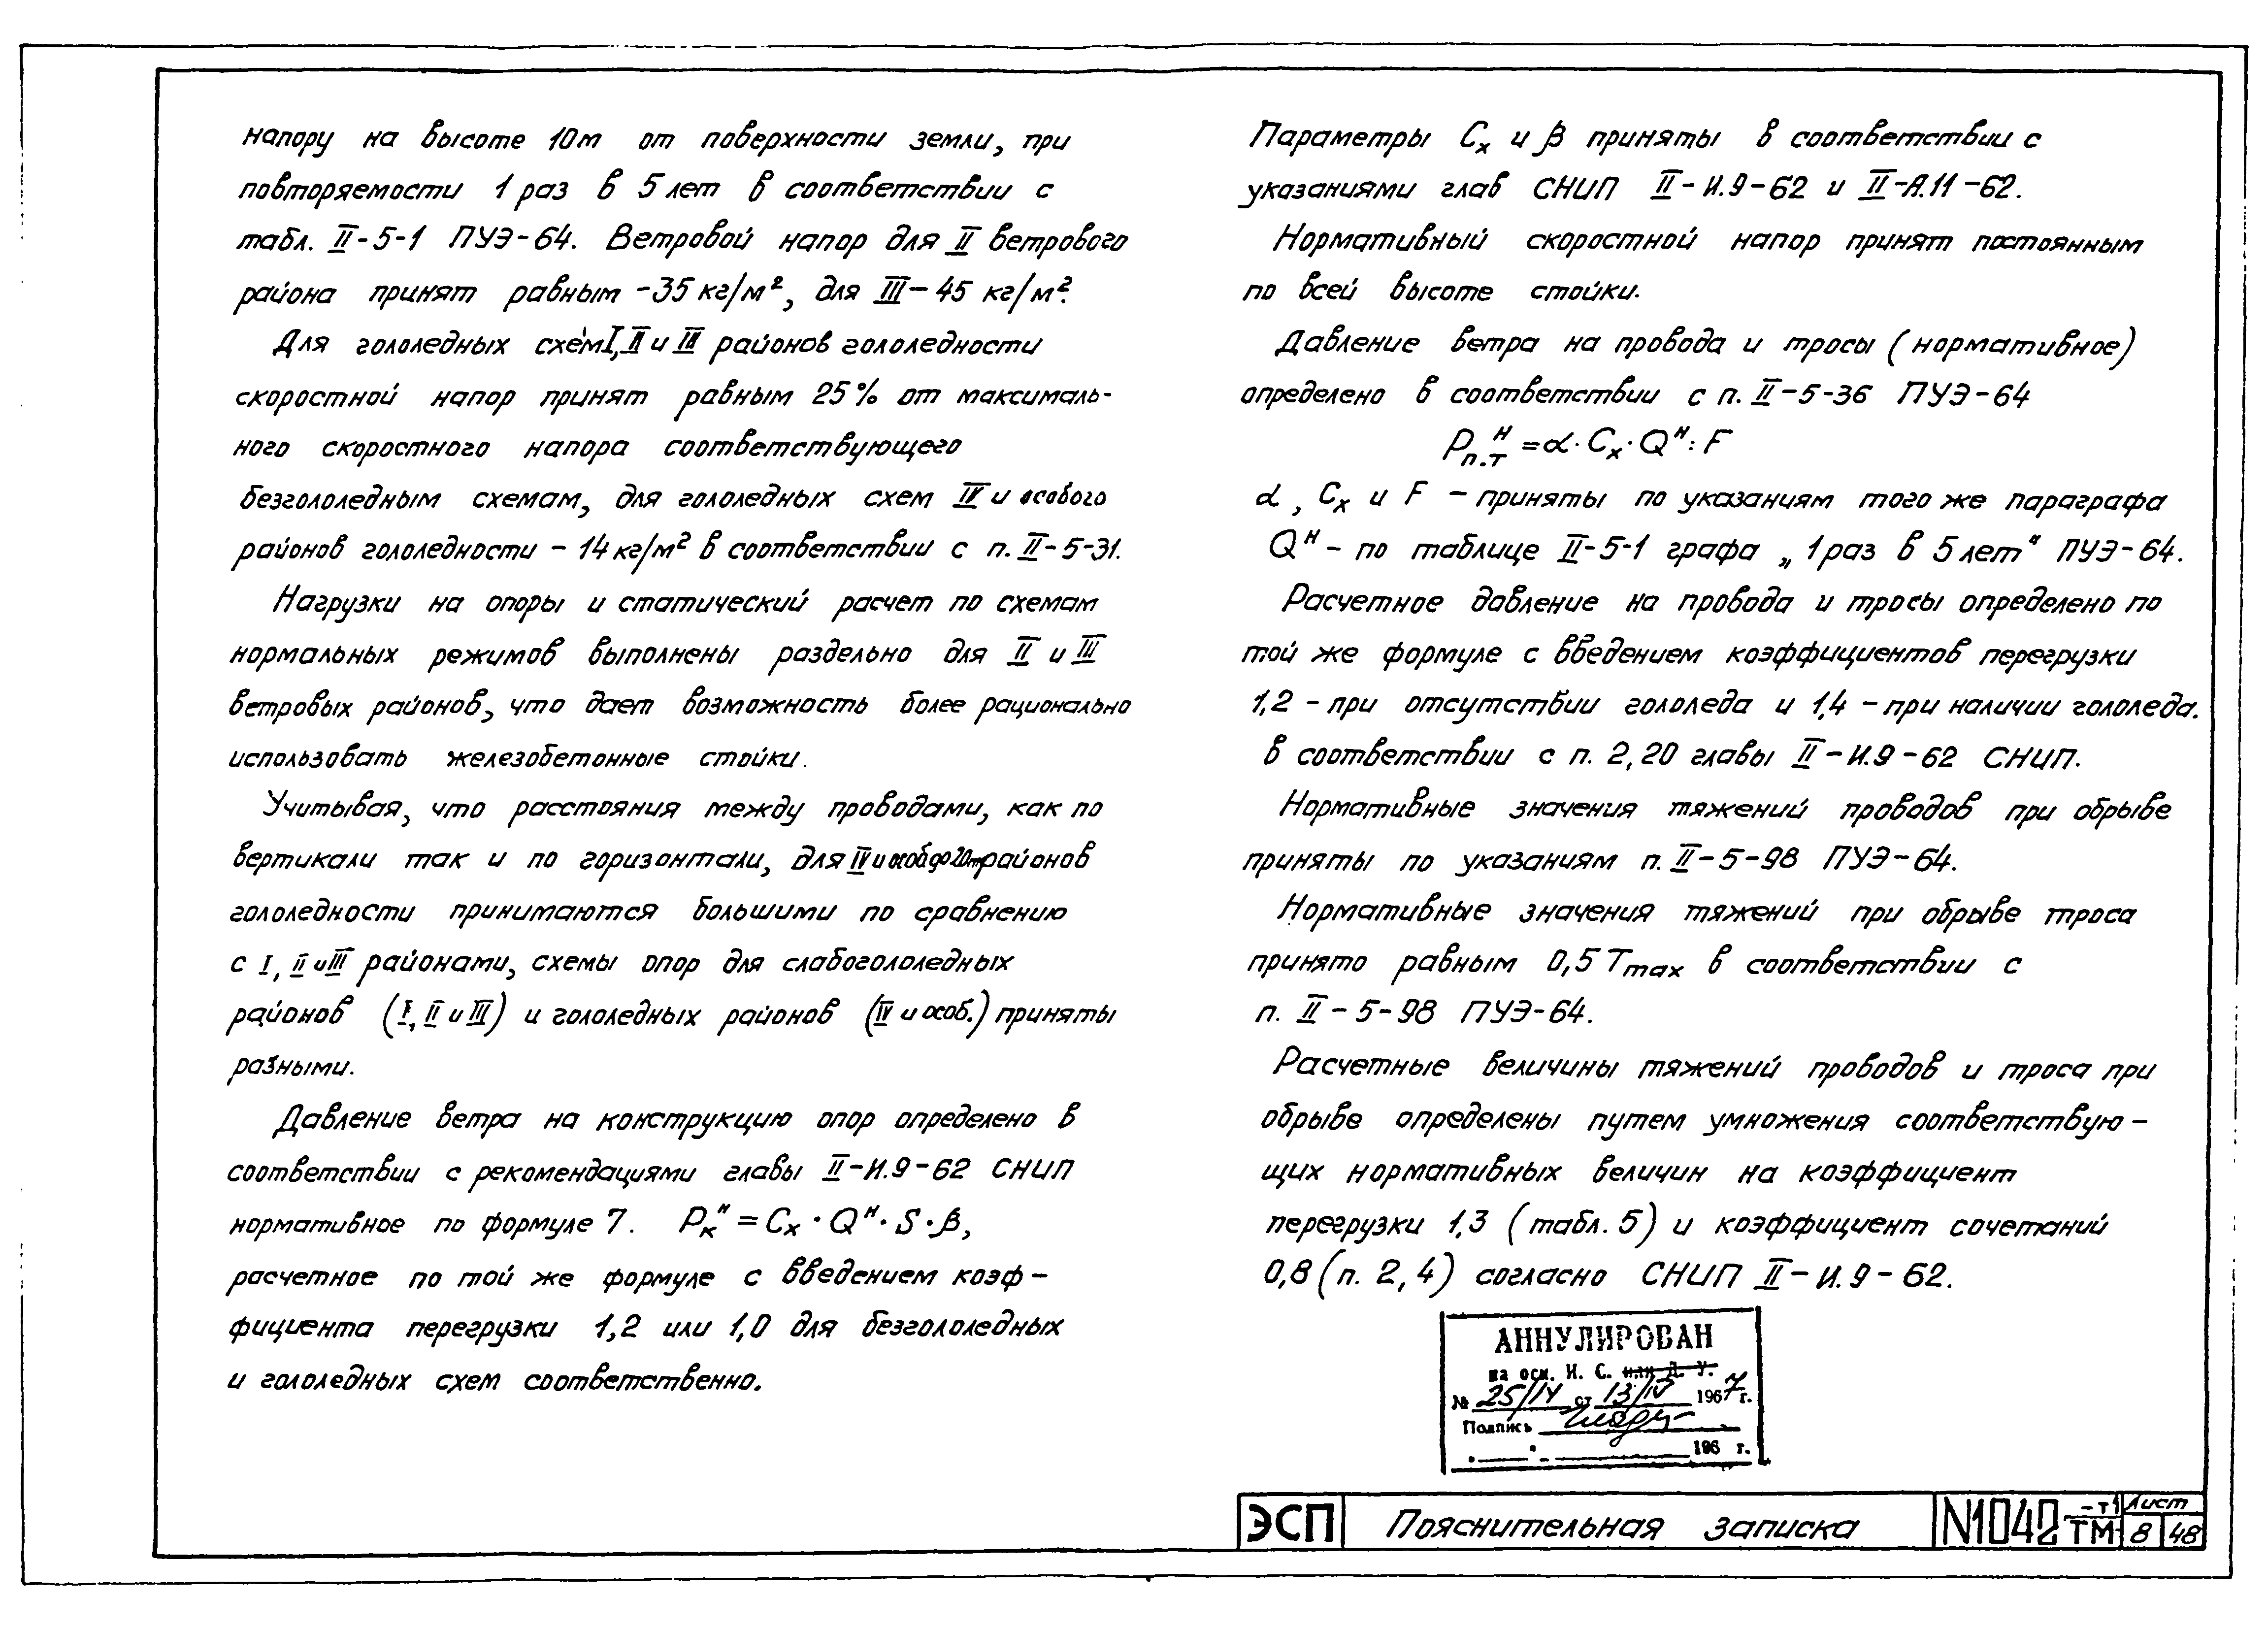 напору на высоте 10м от поверхности земли, при
повторяемости 1 раз в 5 лет в соответствии с
табл. II-5-1 ПУЭ-64. Ветровой напор для II ветрового
района принят равным -35 кг/м², для III - 45 кг/м².
Для гололедных схем I, II и III районов гололедности
скоростной напор принят равным 25% от максималь-
ного скоростного напора соответствующего
безгололедным схемам, для гололедных схем IV и особого
районов гололедности - 14 кг/м² в соответствии с п. II-5-31.
Нагрузки на опоры и статический расчет по схемам
нормальных режимов выполнены раздельно для II и III
ветровых районов, что дает возможность более рационально
использовать железобетонные стойки.
Учитывая, что расстояния между проводами, как по
вертикали так и по горизонтали, для IV и особ до 20 районов
гололедности принимаются большими по сравнению
с I, II и III районами, схемы опор для слабогололедных
районов (I, II и III) и гололедных районов (IV и особ.) приняты
разными.
Давление ветра на конструкцию опор определено в
соответствии с рекомендациями главы II-И.9-62 СНИП
нормативное по формуле 7. Pкᴴ = Cx · Qᴴ · S · β,
расчетное по той же формуле с введением коэф-
фициента перегрузки 1,2 или 1,0 для безгололедных
и гололедных схем соответственно.
Параметры Cx и β приняты в соответствии с
указаниями глав СНИП II-И.9-62 и II-А.11-62.
Нормативный скоростной напор принят постоянным
по всей высоте стойки.
Давление ветра на провода и тросы (нормативное)
определено в соответствии с п. II-5-36 ПУЭ-64
Pп.тᴴ = α · Cx · Qᴴ · F
α, Cx и F - приняты по указаниям того же параграфа
Qᴴ - по таблице II-5-1 графа „1 раз в 5 лет" ПУЭ-64.
Расчетное давление на провода и тросы определено по
той же формуле с введением коэффициентов перегрузки
1,2 - при отсутствии гололеда и 1,4 - при наличии гололеда.
в соответствии с п. 2,20 главы II-И.9-62 СНИП.
Нормативные значения тяжений проводов при обрыве
приняты по указаниям п. II-5-98 ПУЭ-64.
Нормативные значения тяжений при обрыве троса
принято равным 0,5 Tmax в соответствии с
п. II-5-98 ПУЭ-64.
Расчетные величины тяжений проводов и троса при
обрыве определены путем умножения соответствую-
щих нормативных величин на коэффициент
перегрузки 1,3 (табл. 5) и коэффициент сочетаний
0,8 (п. 2,4) согласно СНИП II-И.9-62.
АННУЛИРОВАН
на осн. И. С. или Д. У.
№ 25/IV от 13/IV 1967 г.
Подпись
196 г.
ЭСП Пояснительная записка N1042 -т1 ТМ Лист 8 48